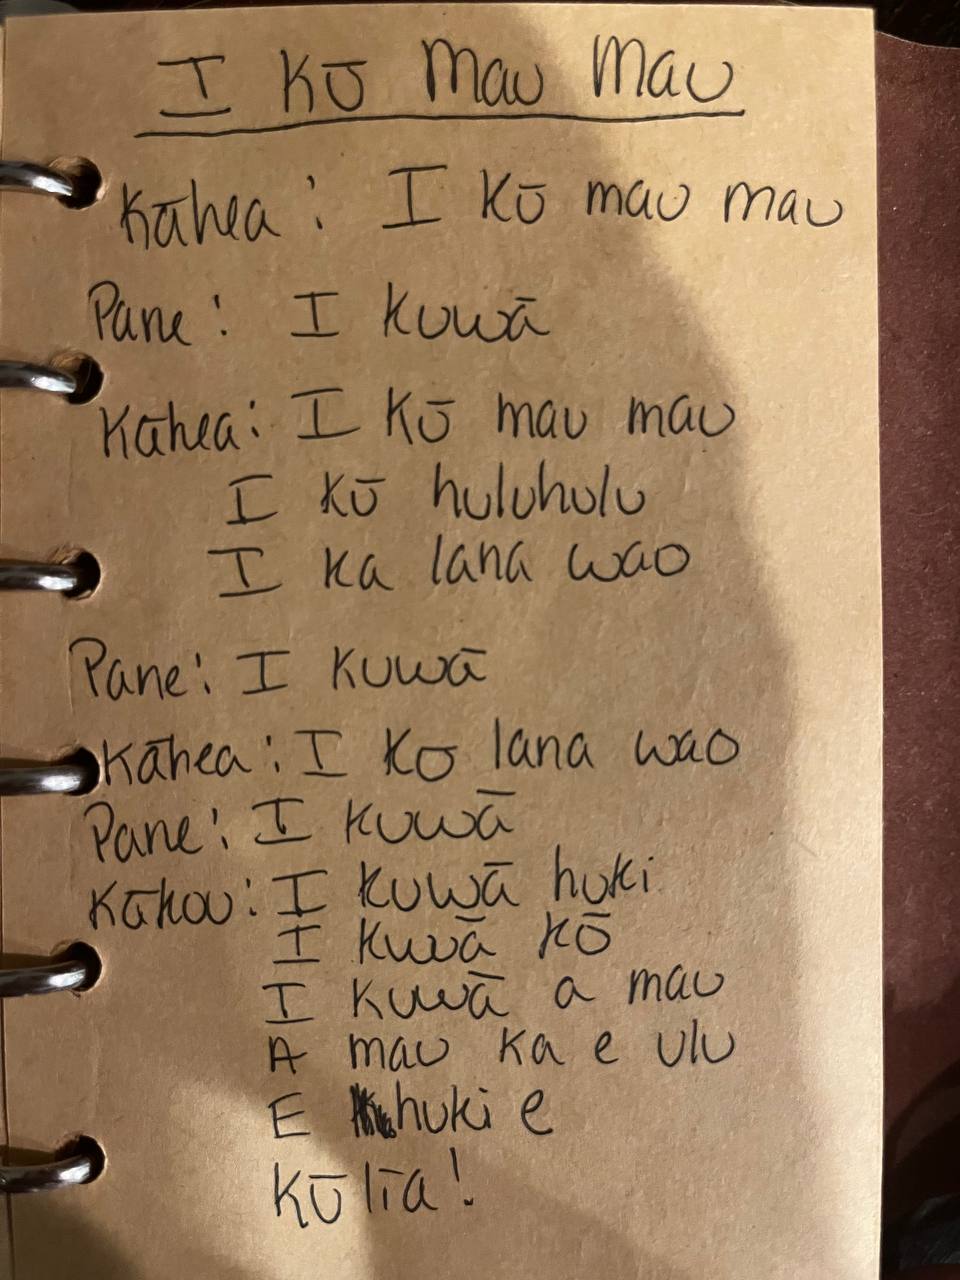 I Kū Mau Mau
Kāhea: I Kū mau mau
Pane: I Kuwā
Kāhea: I Kū mau mau
I Kū huluhulu
I Ka lana wao
Pane: I Kuwā
Kāhea: I Kū lana wao
Pane: I Kuwā
Kākou: I Kuwā huki
I Kuwā Kō
I Kuwā a mau
A mau Ka e ulu
E huki e
Kūlīa!